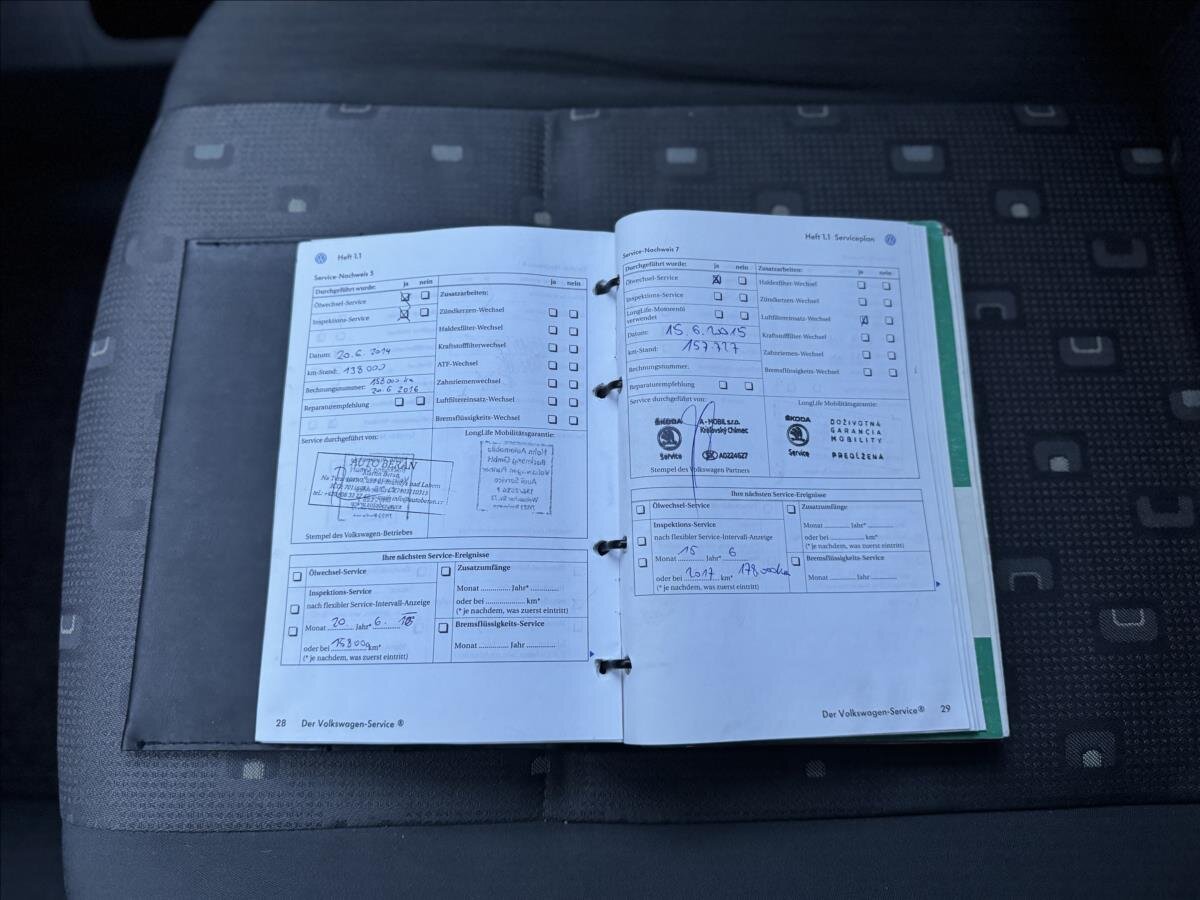 Heft 1.1
Service-Nachweis 5
Durchgeführt wurde: ja nein
Ölwechsel-Service
Inspektions-Service
Datum: 20.6.2014
km-Stand: 138000
Rechnungsnummer: 158000 km
20.6 2016
Reparaturempfehlung
ja nein
Zusatzarbeiten:
Zündkerzen-Wechsel
Haldexfilter-Wechsel
Kraftstofffilterwechsel
ATF-Wechsel
Zahnriemenwechsel
Luftfiltereinsatz-Wechsel
Bremsflüssigkeits-Wechsel
Service durchgeführt von:
AUTO BERAN
Stempel des Volkswagen-Betriebes
LongLife Mobilitätsgarantie:
Ihre nächsten Service-Ereignisse
Ölwechsel-Service
Inspektions-Service
nach flexibler Service-Intervall-Anzeige
Monat 20. Jahr* 6.
oder bei 158000 km*
(* je nachdem, was zuerst eintritt)
Zusatzumfänge
Monat Jahr*
oder bei km*
(* je nachdem, was zuerst eintritt)
Bremsflüssigkeits-Service
Monat Jahr
28 Der Volkswagen-Service ®
Heft 1.1 Serviceplan
Service-Nachweis 7
Durchgeführt wurde: ja nein
Ölwechsel-Service
Inspektions-Service
LongLife-Motorenöl
verwendet
Datum: 15.6.2015
km-Stand: 157.727
Rechnungsnummer:
Reparaturempfehlung
Zusatzarbeiten: ja nein
Haldexfilter-Wechsel
Zündkerzen-Wechsel
Luftfiltereinsatz-Wechsel
Kraftstofffilter-Wechsel
Zahnriemen-Wechsel
Bremsflüssigkeits-Wechsel
Service durchgeführt von:
ŠKODA
Service
A-MOBIL s.r.o.
Kráľovský Chlmec
A0224627
Stempel des Volkswagen Partners
LongLife Mobilitätsgarantie:
ŠKODA
Service
DOŽIVOTNÁ
GARANCIA
MOBILITY
PREDĹŽENÁ
Ihre nächsten Service-Ereignisse
Ölwechsel-Service
Inspektions-Service
nach flexibler Service-Intervall-Anzeige
Monat 15 Jahr* 6
oder bei 2017 km* 178
(* je nachdem, was zuerst eintritt)
Zusatzumfänge
Monat Jahr*
oder bei km*
(* je nachdem, was zuerst eintritt)
Bremsflüssigkeits-Service
Monat Jahr
Der Volkswagen-Service ® 29